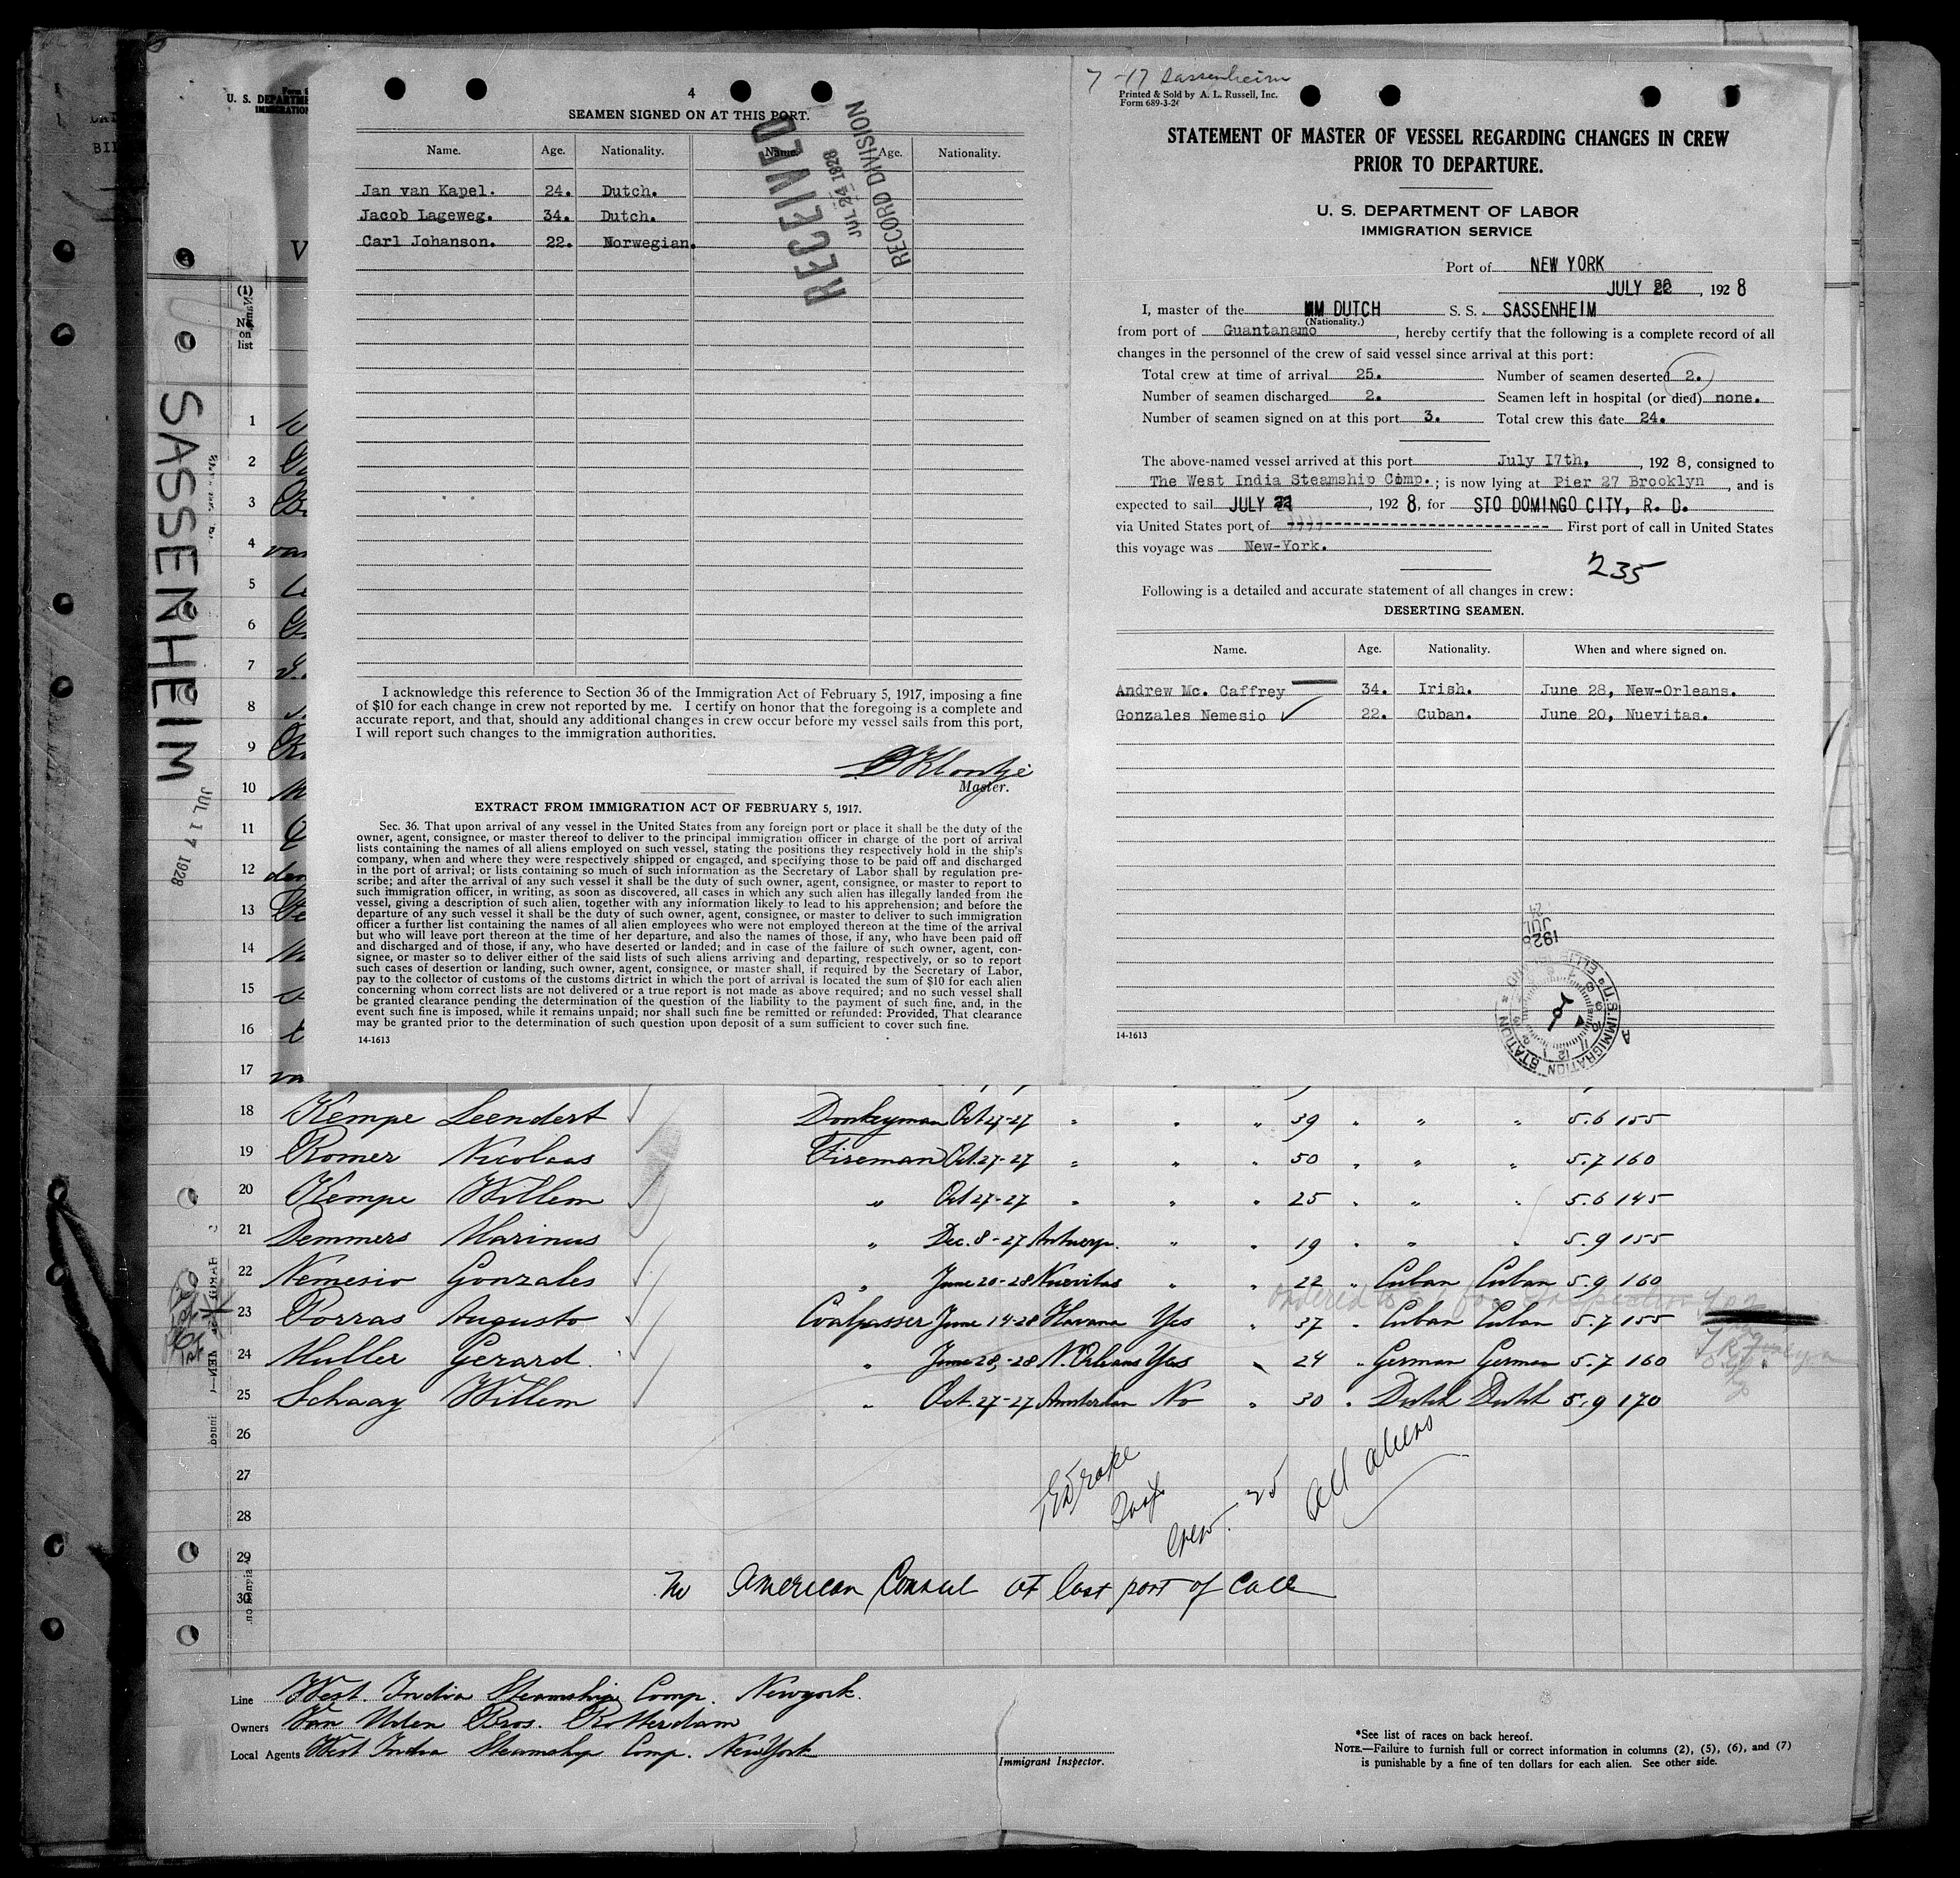 4
SEAMEN SIGNED ON AT THIS PORT.
Name. Age. Nationality. Name. Age. Nationality.
Jan van Kapel. 24. Dutch.
Jacob Lageweg. 34. Dutch.
Carl Johanson. 22. Norwegian.
RECEIVED
JUL 24 1928
RECORD DIVISION
I acknowledge this reference to Section 36 of the Immigration Act of February 5, 1917, imposing a fine
of $10 for each change in crew not reported by me. I certify on honor that the foregoing is a complete and
accurate report, and that, should any additional changes in crew occur before my vessel sails from this port,
I will report such changes to the immigration authorities.
Master.
EXTRACT FROM IMMIGRATION ACT OF FEBRUARY 5, 1917.
Sec. 36. That upon arrival of any vessel in the United States from any foreign port or place it shall be the duty of the
owner, agent, consignee, or master thereof to deliver to the principal immigration officer in charge of the port of arrival
lists containing the names of all aliens employed on such vessel, stating the positions they respectively hold in the ship's
company, when and where they were respectively shipped or engaged, and specifying those to be paid off and discharged
in the port of arrival; or lists containing so much of such information as the Secretary of Labor shall by regulation pre-
scribe; and after the arrival of any such vessel it shall be the duty of such owner, agent, consignee, or master to report to
such immigration officer, in writing, as soon as discovered, all cases in which any such alien has illegally landed from the
vessel, giving a description of such alien, together with any information likely to lead to his apprehension; and before the
departure of any such vessel it shall be the duty of such owner, agent, consignee, or master to deliver to such immigration
officer a further list containing the names of all alien employees who were not employed thereon at the time of the arrival
but who will leave port thereon at the time of her departure, and also the names of those, if any, who have been paid off
and discharged and of those, if any, who have deserted or landed; and in case of the failure of such owner, agent, con-
signee, or master so to deliver either of the said lists of such aliens arriving and departing, respectively, or so to report
such cases of desertion or landing, such owner, agent, consignee, or master shall, if required by the Secretary of Labor,
pay to the collector of customs of the customs district in which the port of arrival is located the sum of $10 for each alien
concerning whom correct lists are not delivered or a true report is not made as above required; and no such vessel shall
be granted clearance pending the determination of the question of the liability to the payment of such fine, and, in the
event such fine is imposed, while it remains unpaid; nor shall such fine be remitted or refunded: Provided, That clearance
may be granted prior to the determination of such question upon deposit of a sum sufficient to cover such fine.
14-1613
7-17 Sassenheim
Printed & Sold by A. L. Russell, Inc.
Form 689-3-26
STATEMENT OF MASTER OF VESSEL REGARDING CHANGES IN CREW
PRIOR TO DEPARTURE.
U. S. DEPARTMENT OF LABOR
IMMIGRATION SERVICE
Port of NEW YORK
JULY 22, 1928
I, master of the DUTCH S. S. SASSENHEIM
(Nationality.)
from port of Guantanamo, hereby certify that the following is a complete record of all
changes in the personnel of the crew of said vessel since arrival at this port:
Total crew at time of arrival 25. Number of seamen deserted 2.
Number of seamen discharged 2. Seamen left in hospital (or died) none.
Number of seamen signed on at this port 3. Total crew this date 24.
The above-named vessel arrived at this port July 17th, 1928, consigned to
The West India Steamship Comp.; is now lying at Pier 27 Brooklyn, and is
expected to sail JULY, 1928, for STO DOMINGO CITY, R. D.
via United States port of First port of call in United States
this voyage was New-York.
235
Following is a detailed and accurate statement of all changes in crew:
DESERTING SEAMEN.
Name. Age. Nationality. When and where signed on.
Andrew Mc. Caffrey 34. Irish. June 28, New-Orleans.
Gonzales Nemesio 22. Cuban. June 20, Nuevitas.
14-1613
1928
JUL
U.S. IMMIGRATION STATION ELLIS ISLAND
SASSENHEIM
JUL 17 1928
U. S. DEPARTME
IMMIGRATION
(1)
No.
on
list
1
2
3
4 van
5
6
7
8
9
10
11
12 den
13
14
15
16
17 va
18 Kempe Leendert Donkeyman Oct 27-27 " " " 39 " " " 5.6 155
19 Romer Nicolaas Fireman Oct. 27-27 " " " 50 " " " 5.7 160
20 Kempe Willem " Oct 27-27 " " " 25 " " " 5.6 145
21 Demmers Marinus " Dec. 8-27 Antwerp. " " 19 " " " 5.9 155
22 Nemesio Gonzales " June 20-28 Nuevitas " " 22 " Cuban Cuban 5.9 160
23 Porras Augusto Coalpasser June 14-28 Havana Yes " 37 " Cuban Cuban 5.7 155
24 Muller Gerard. " June 28,-28 N. Orleans Yes " 24 " German German 5.7 160
25 Schaay Willem " Oct. 27-27 Amsterdam No " 30 " Dutch Dutch 5.9 170
26
27
28
29
30
Crew. 25 All aliens
To American Consul at last port of call
Line West India Steamship Comp. Newyork.
Owners Van Uden Bros. Rotterdam
Local Agents West India Steamship Comp. New York
Immigrant Inspector.
*See list of races on back hereof.
NOTE.—Failure to furnish full or correct information in columns (2), (5), (6), and (7)
is punishable by a fine of ten dollars for each alien. See other side.